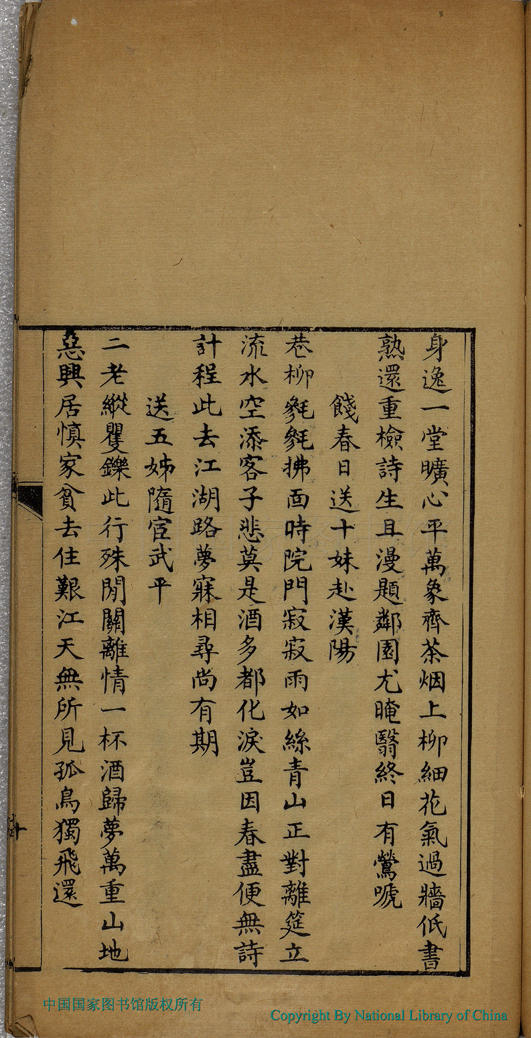 身逸一堂曠心平萬象齊茶烟上柳細花氣過牆低書
熟還重檢詩生且漫題鄰園尤晻翳終日有鶯嗁
餞春日送十妹赴漢陽
巷柳毿毿拂面時院門寂寂雨如絲青山正對離筵立
流水空添客子悲莫是酒多都化淚豈因春盡便無詩
計程此去江湖路夢寐相尋尚有期
送五姊隨宦武平
二老縱矍鑠此行殊閒關離情一杯酒歸夢萬重山地
惡興居慎家貧去住艱江天無所見孤鳥獨飛還
十
中国国家图书馆版权所有
Copyright By National Library of China